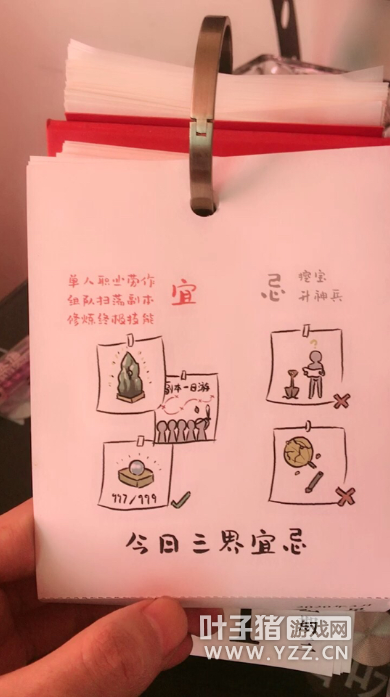 单人职业劳作
组队扫荡副本
修炼终极技能
宜
忌
挖宝
升神兵
副本一日游
?
999/999
今日三界宜忌
叶子猪游戏网
www.YZZ.CN